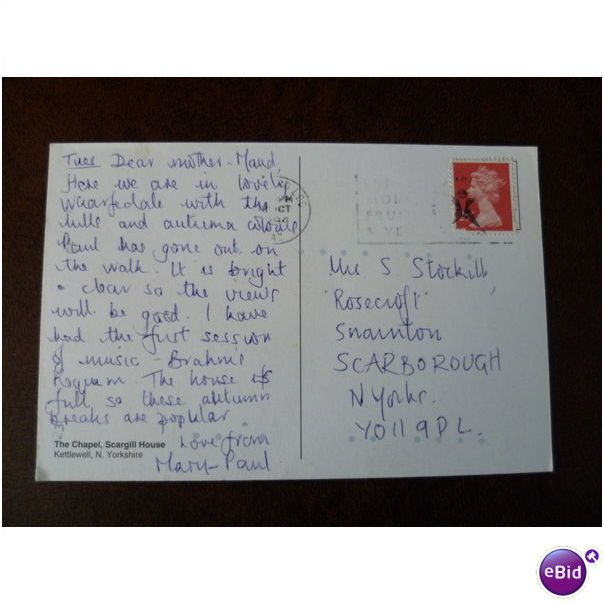 Tues Dear Mother-Maud,
Here we are in lovely
Wharfedale with the
hills and autumn colours
Paul has gone out on
the walk. It is bright
& clear so the views
will be good. I have
had the first session
of music - Brahms
Requiem The house is
full so these autumn
breaks are popular
Love from
Mary-Paul
The Chapel, Scargill House
Kettlewell, N. Yorkshire
PM
OCT
Mrs S Stockill,
'Rosecroft'
Snainton
SCARBOROUGH
N Yorks.
YO11 9PL.
eBid